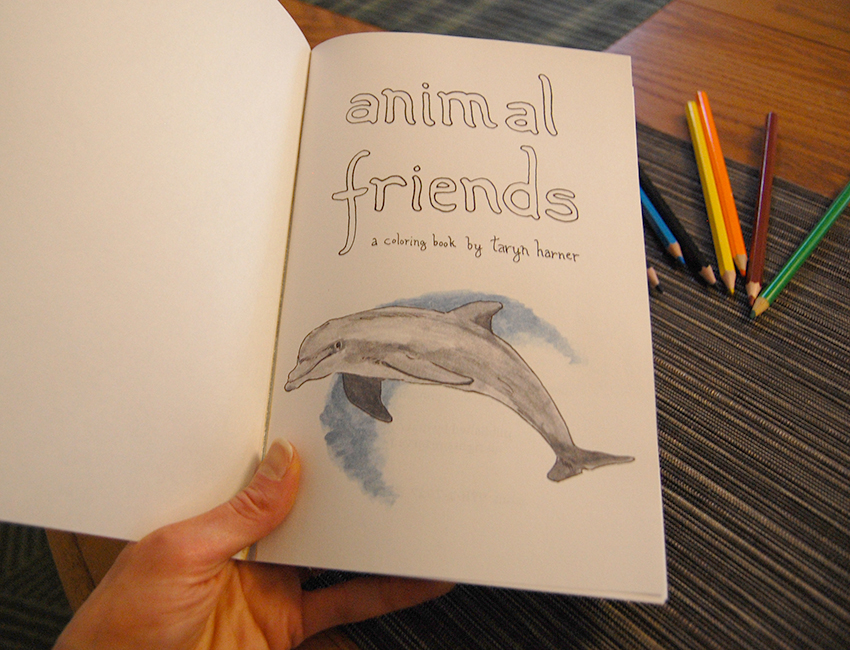 animal
friends
a coloring book by taryn harner